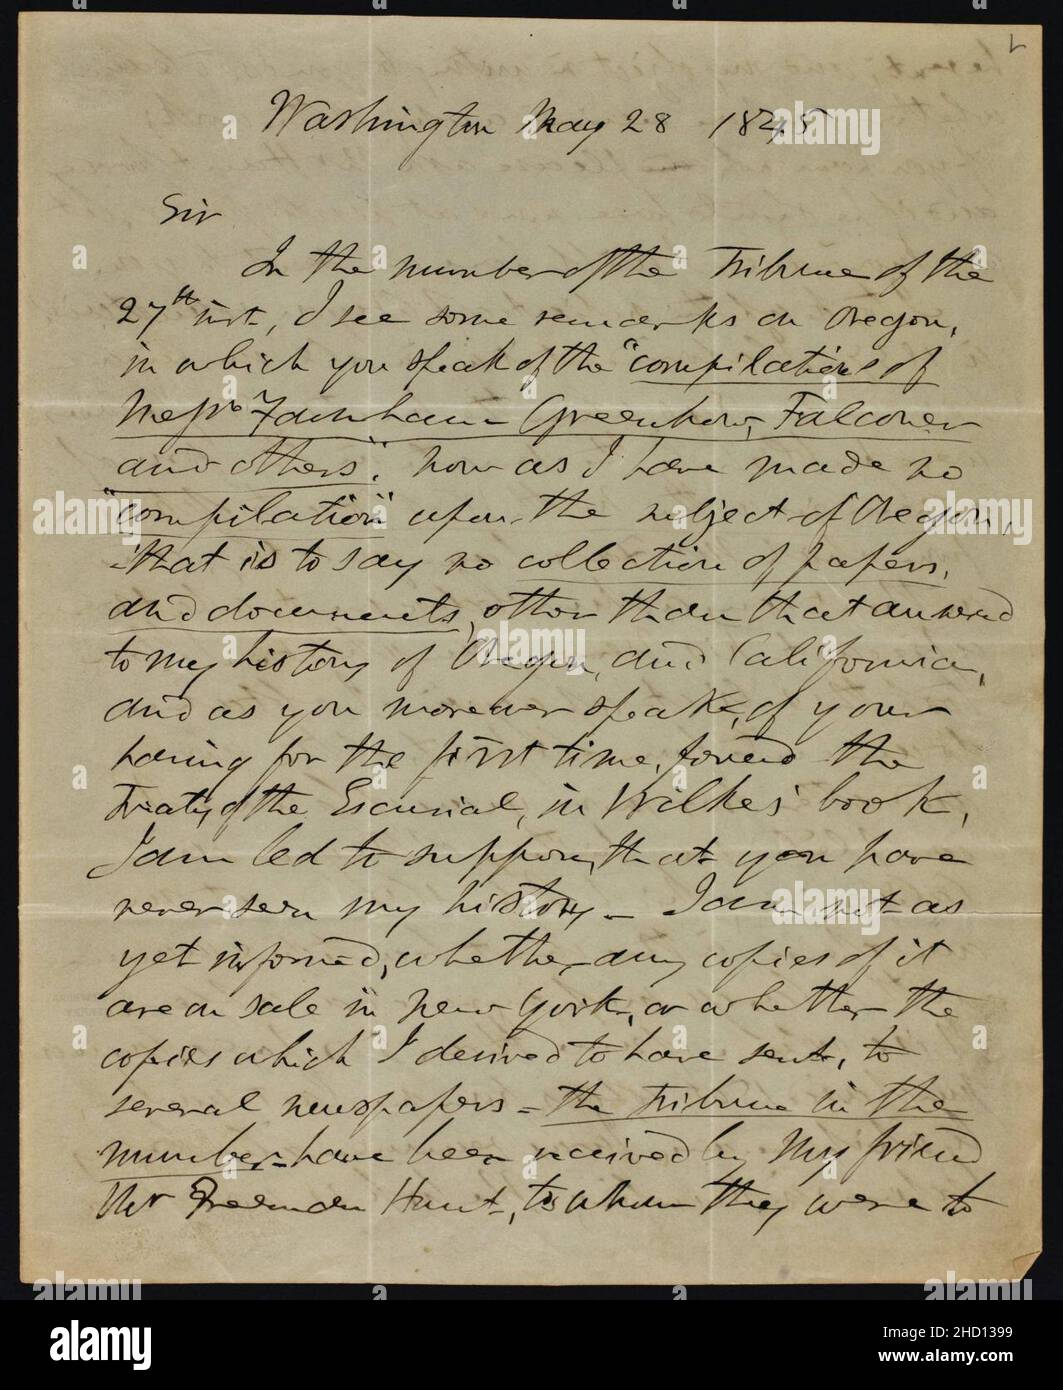 Washington May 28 1845
Sir
In the number of the Tribune of the
27th inst, I see some remarks on Oregon,
in which you speak of the "compilations of
Messrs Farnham Greenhow, Falconer
and others". now as I have made no
"compilation" upon the subject of Oregon,
that is to say no collection of papers,
and documents, other than that annexed
to my history of Oregon, and California,
and as you moreover speak, of your
having for the first time, found the
Treaty of the Escurial, in Wilkes' book,
I am led to suppose, that you have
never seen my history - I am not as
yet informed, whether any copies of it
are on sale in New York, or whether the
copies which I desired to have sent, to
several newspapers - the Tribune in the
number - have been received by my friend
Mr Freeman Hunt, to whom they were to
alamy
a
alamy
Image ID: 2HD1399
www.alamy.com